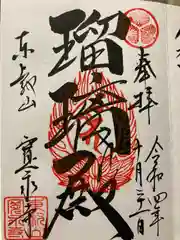 奉拝
令和四年
十月二十一日
瑠璃殿
東叡山
寛永寺